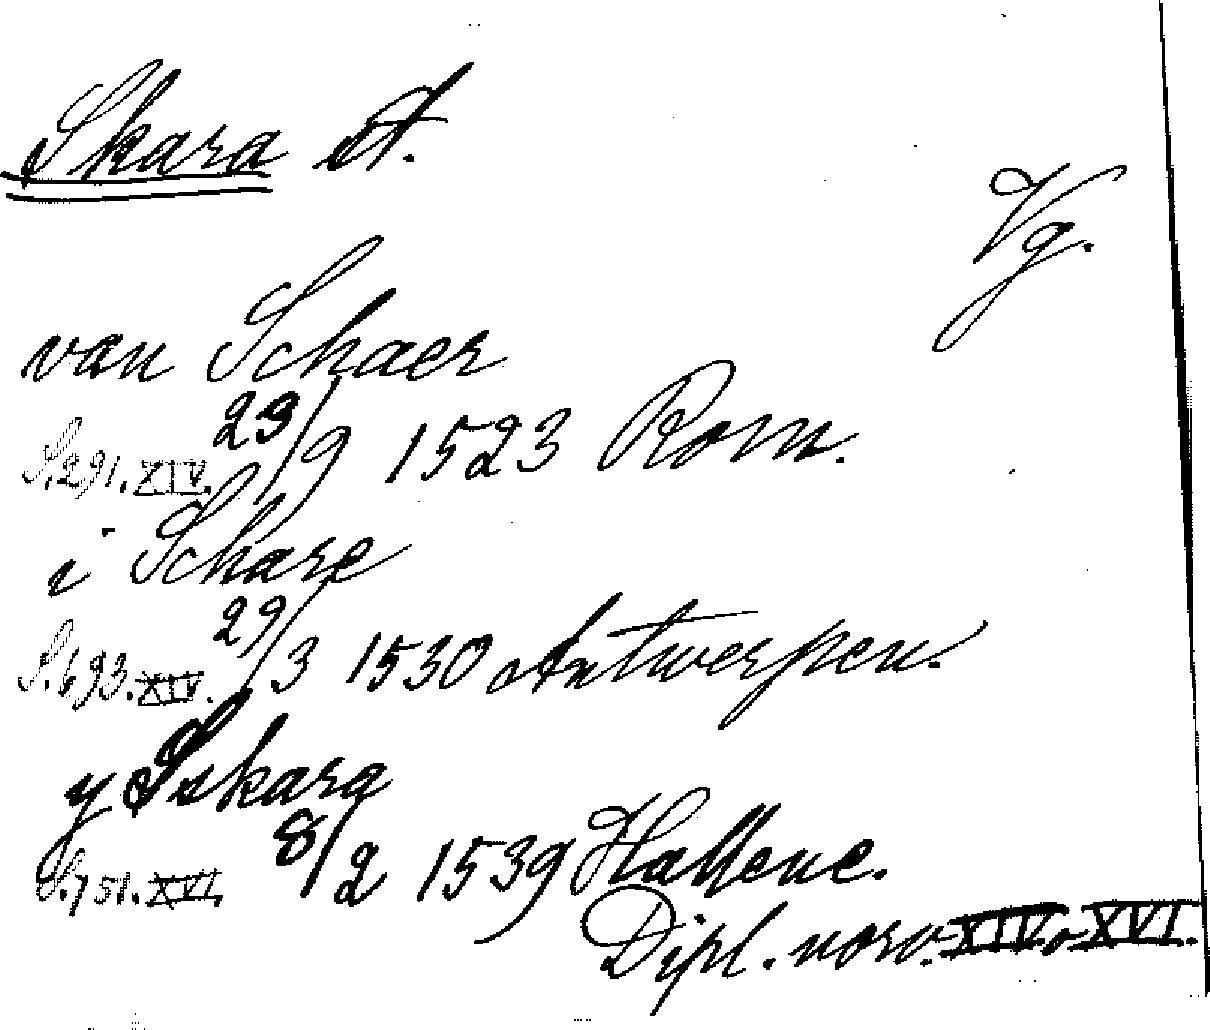 Skara st.
Vg.
van Schaer
S. 291. XIV. 23/9 1523 Rom.
i Schare
S. 693. XIV. 29/3 1530 Antwerpen.
y Sskara
S. 751. XVI. 8/2 1539 Hallene.
Dipl. norv. XIV o XVI.